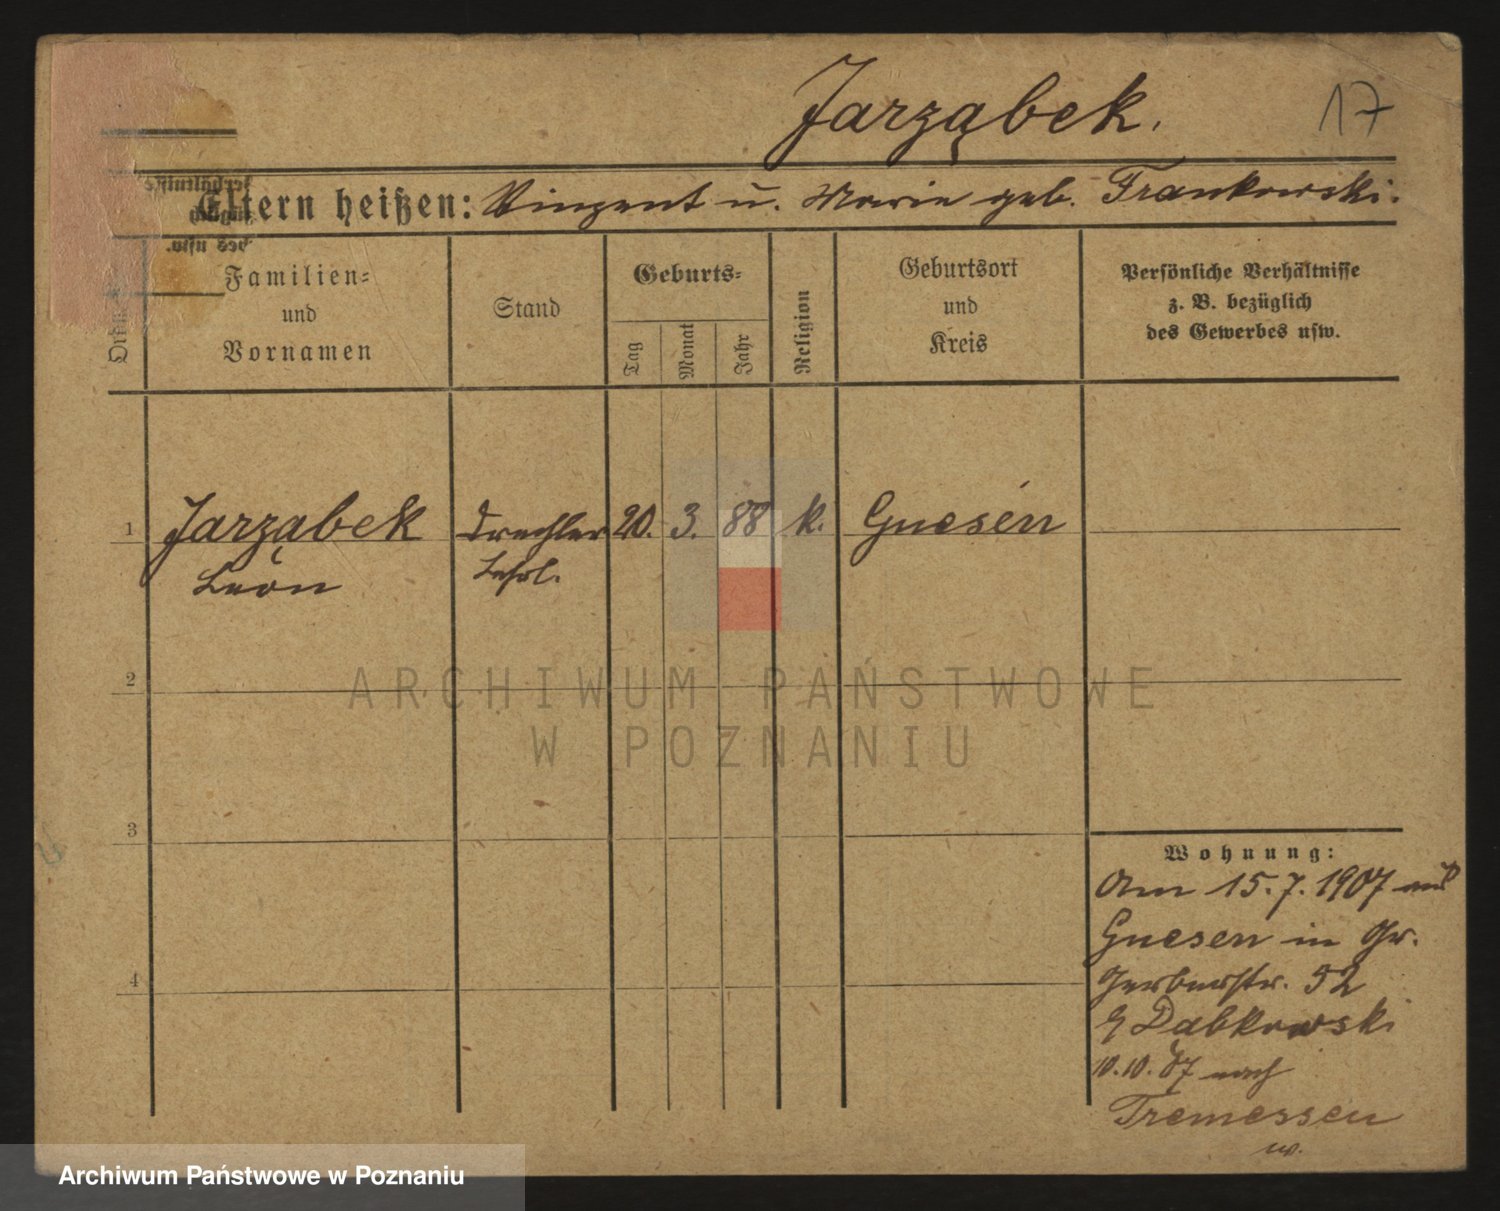 Jarząbek.
17
Eltern heißen: Vinzent u. Marie geb. Frankowski.
Familien-
und
Vornamen
Stand
Geburts-
Tag
Monat
Jahr
Religion
Geburtsort
und
Kreis
Persönliche Verhältnisse
z. B. bezüglich
des Gewerbes usw.
1 Jarząbek Drechsler 20. 3. 88 k. Gnesen
Leon Lehrl.
2
3
4
Wohnung:
Am 15.7.1907 aus
Gnesen in Gr.
Gerberstr. 52
Dąbkowski
10.10.07 nach
Tremessen
ARCHIWUM PAŃSTWOWE
W POZNANIU
Archiwum Państwowe w Poznaniu